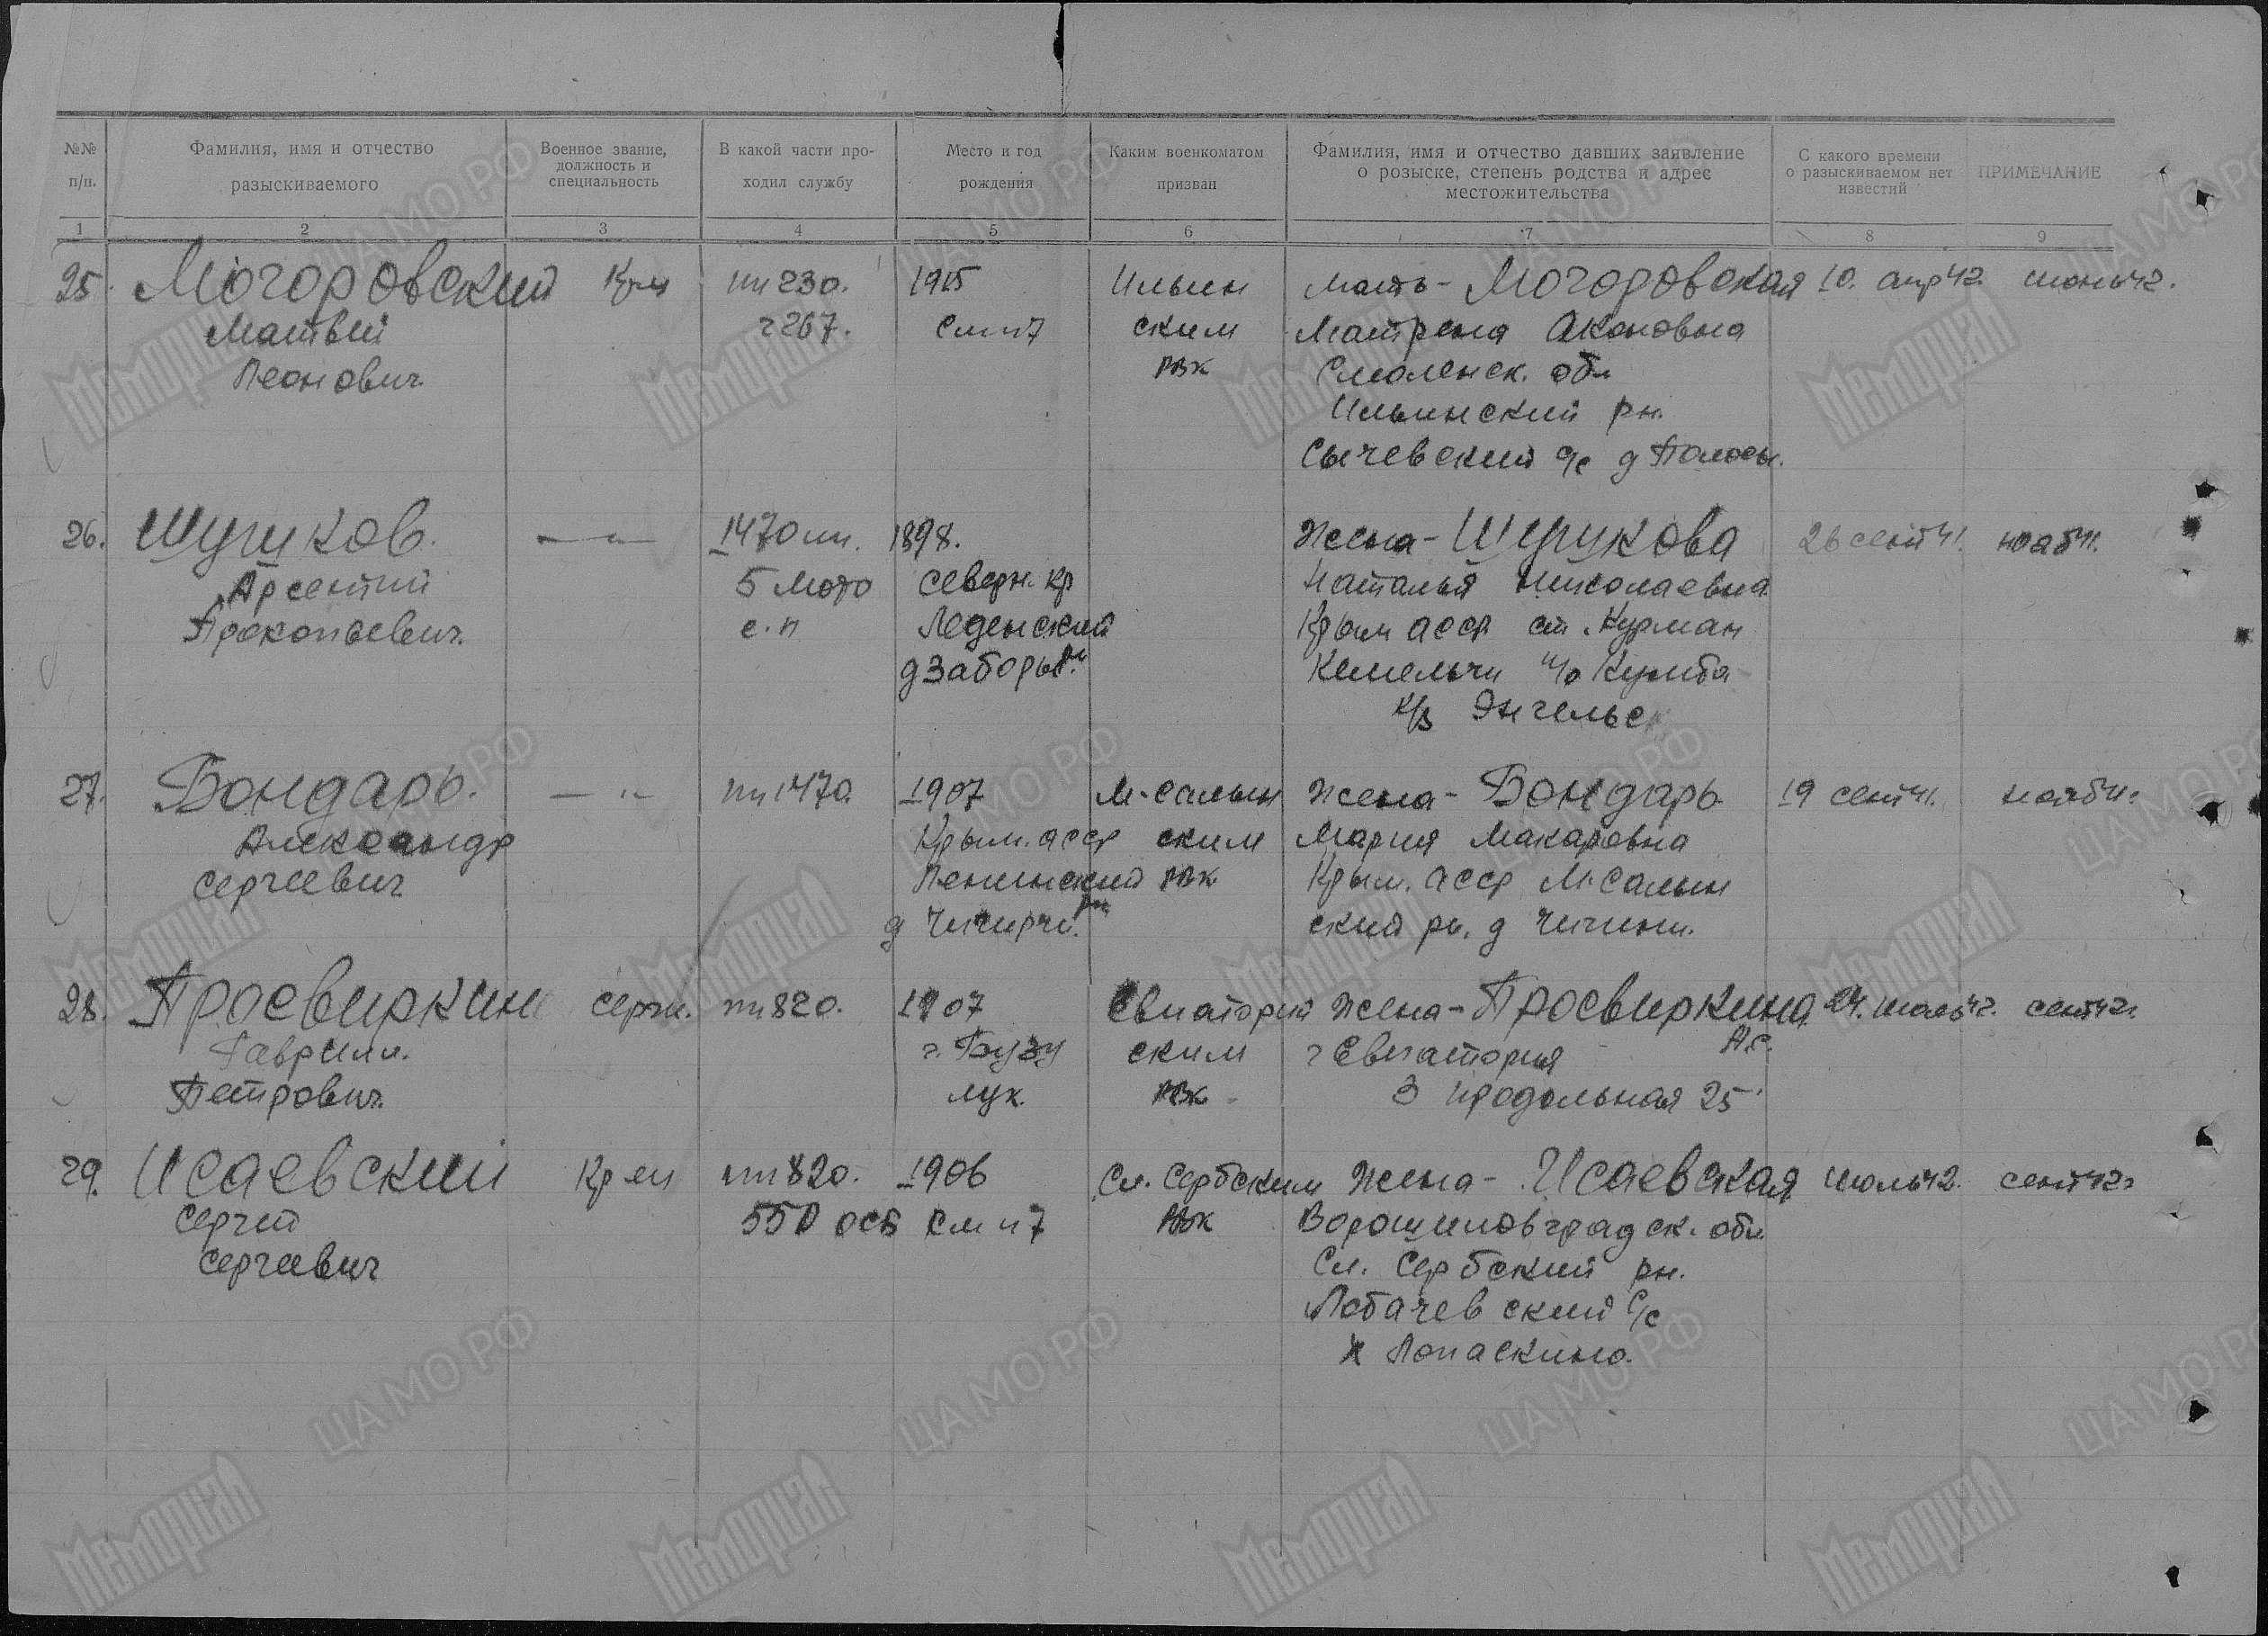 №№ п/п.
Фамилия, имя и отчество разыскиваемого
Военное звание, должность и специальность
В какой части проходил службу
Место и год рождения
Каким военкоматом призван
Фамилия, имя и отчество давших заявление о розыске, степень родства и адрес местожительства
С какого времени о разыскиваемом нет известий
ПРИМЕЧАНИЕ
1 2 3 4 5 6 7 8 9
25. Могоровский Кр-ц пп 230. 1915 Ильин Мать - Могоровская 10. апр 42. июнь 42.
Матвей ч 267. См п 7 ским Матрена
Леонович РВК Смоленск. обл
Ильинский рн.
Сычевский с/с д
26. Шугуков. — " — 1470 пп. 1898. Жена - Шугукова 26 сент 41. нояб 41.
Арсентий 5 мото Северн. кр Наталья Николаевна
Прокопьевич. с. п Леденский Крым АССР ст. Курман
д Заборье рн. Кемельчи п/о
к/з Энгельс
27. Бондарь. — " — пп 1470. 1907 М-Салын Жена - Бондарь 19 сент 41. нояб 41.
Александр Крым. АССР ским Мария Макаровна
Сергеевич Ленинский РВК Крым. АССР М-Салын
рн
д ский рн. д
28. Просвиркин серж. пп 820. 1907 Евпаторий Жена - Просвиркина 24. июль 42. сент 42.
Гаврил. г. Бузу ским г Евпатория А.С.
Петрович. лук. РВК 3 продольная 25
29. Исаевский Кр-ец пп 820. 1906 Сл. Сербским Жена - Исаевская июль 42. сент 42
Сергей 550 осб См п 7 РВК Ворошиловградск. обл.
Сергеевич Сл. Сербский рн.
Лобачевский с/с
х Лопаскино.
ЦА МО РФ
Мемориал